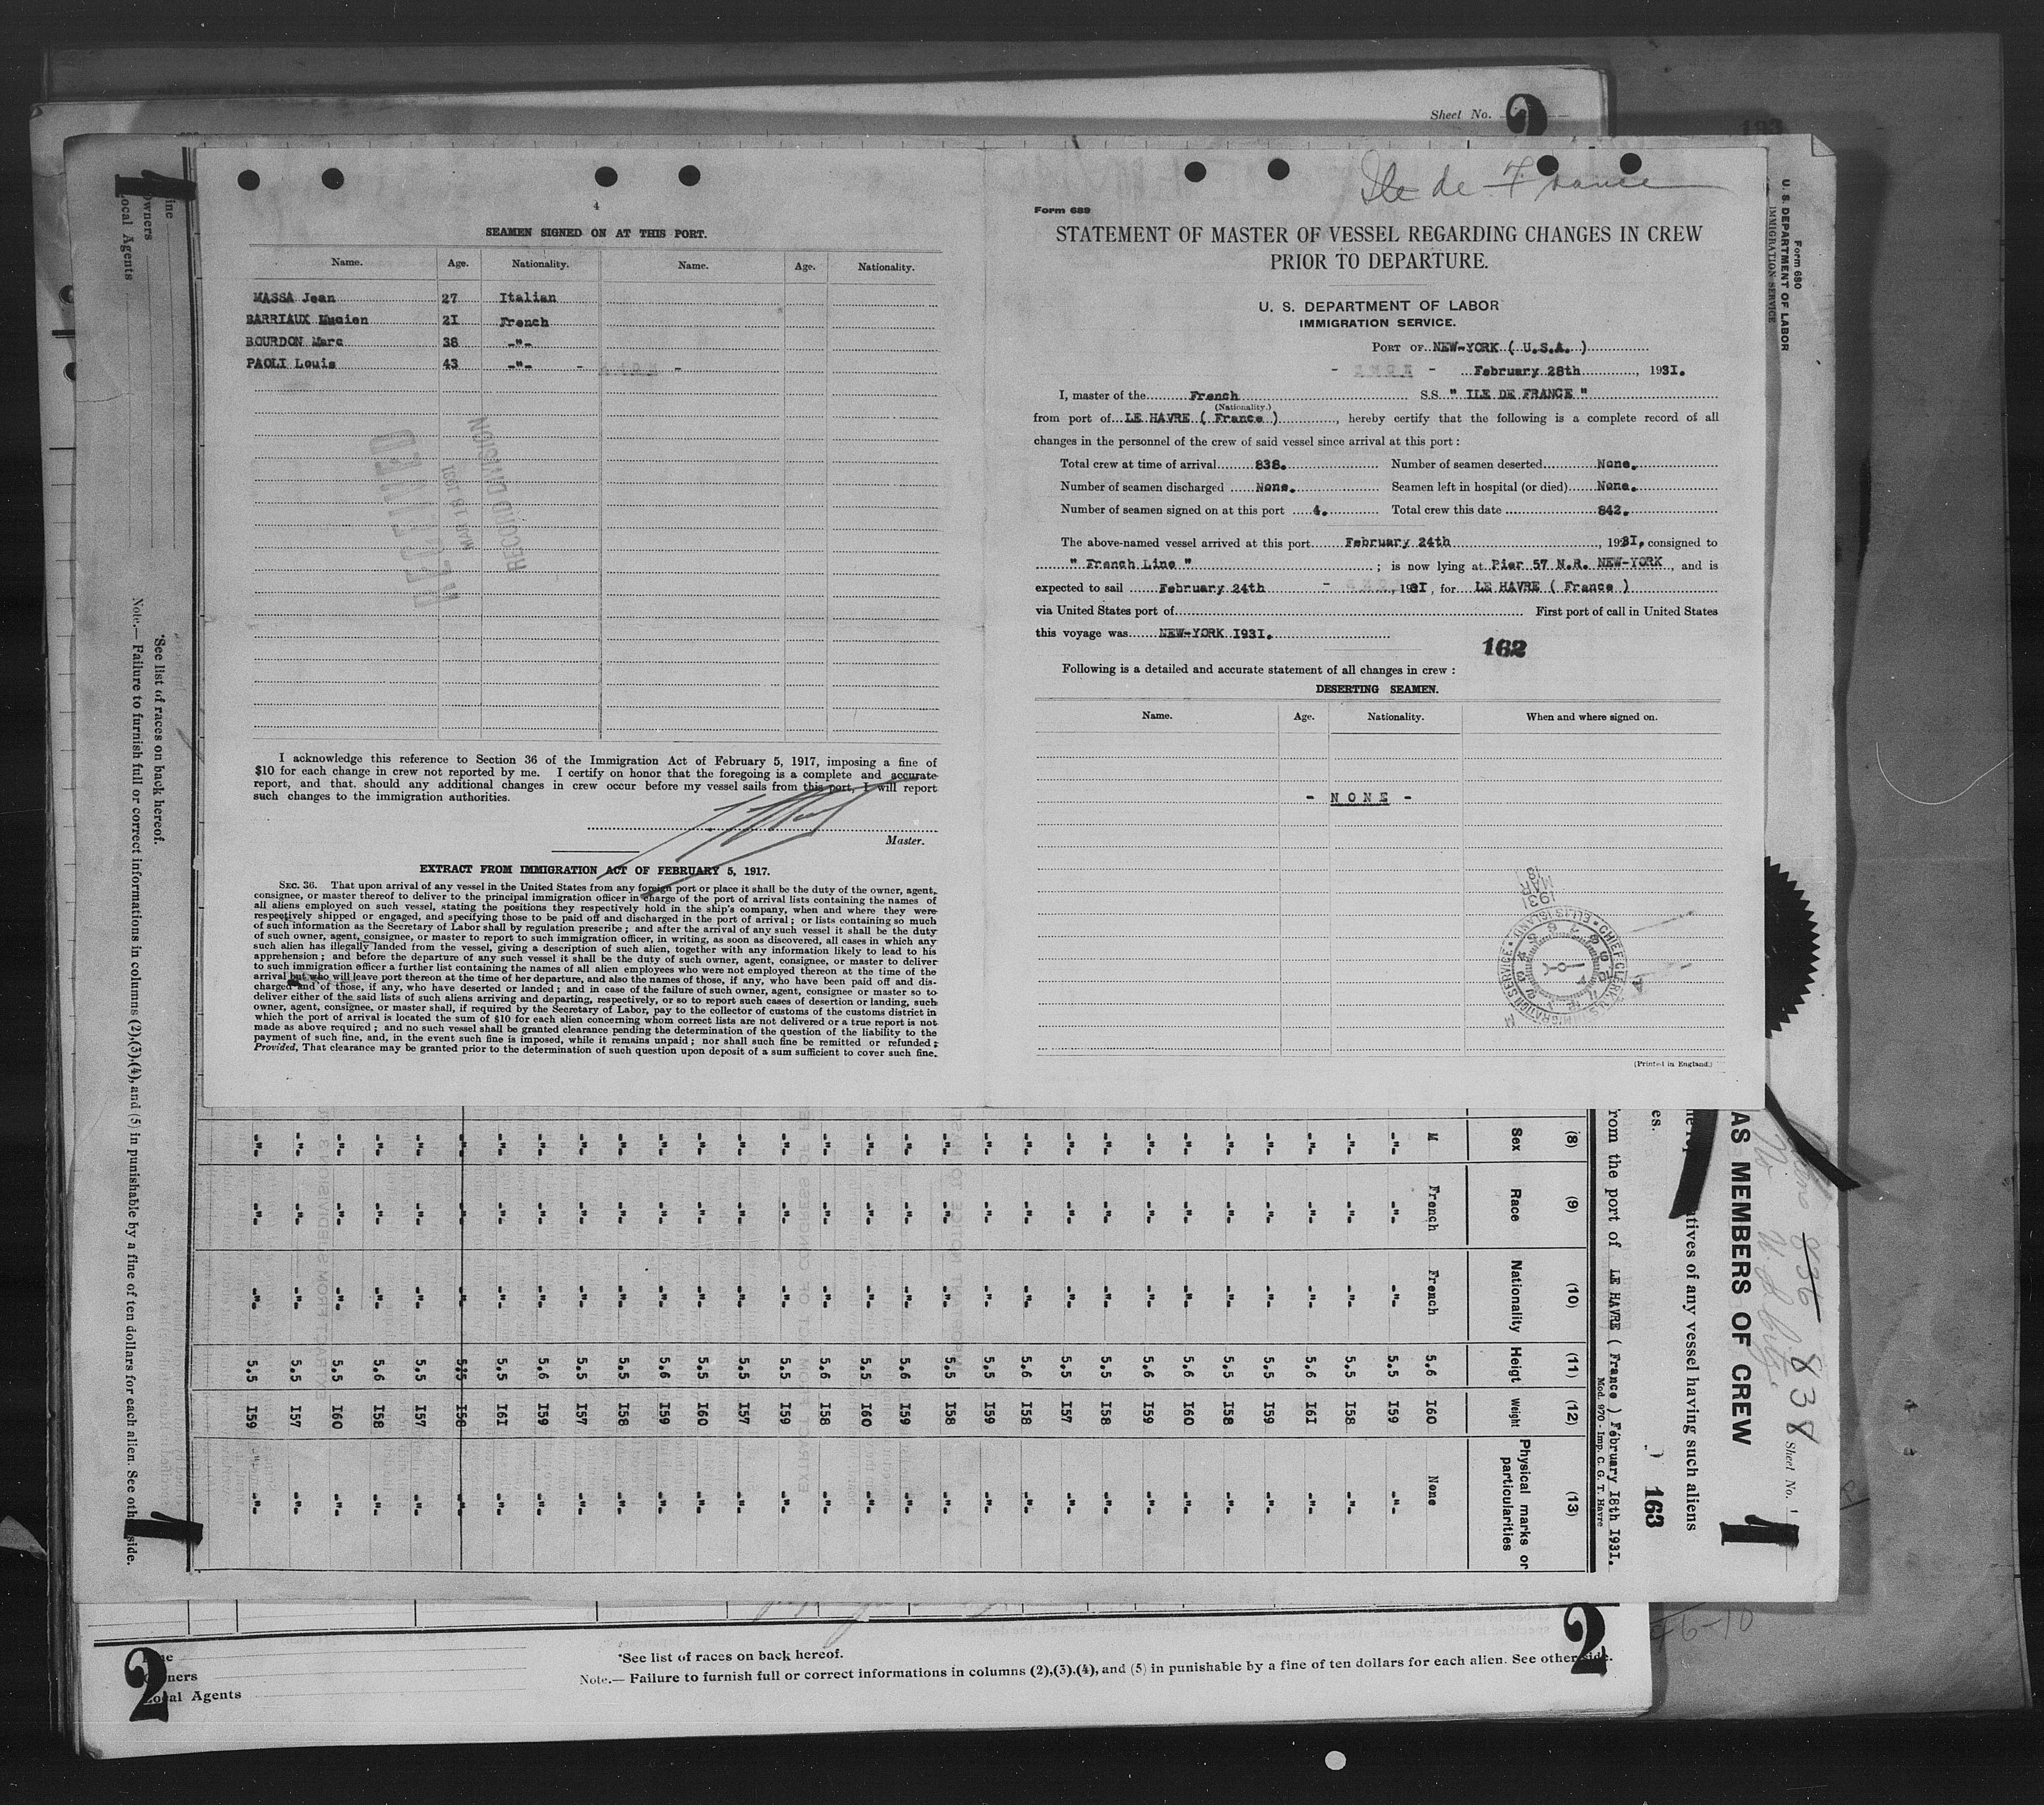 Sheet No. 2
4
SEAMEN SIGNED ON AT THIS PORT.
Name. Age. Nationality. Name. Age. Nationality.
MASSA Jean 27 Italian
BARRIAUX Mucien 2I French
BOURDON Marc 38 -"-
PAOLI Louis 43 -"-
MAR 13 1931
RECORD DIVISION
I acknowledge this reference to Section 36 of the Immigration Act of February 5, 1917, imposing a fine of
$10 for each change in crew not reported by me. I certify on honor that the foregoing is a complete and accurate
report, and that. should any additional changes in crew occur before my vessel sails from this port, I will report
such changes to the immigration authorities.
Master.
EXTRACT FROM IMMIGRATION ACT OF FEBRUARY 5, 1917.
SEC. 36. That upon arrival of any vessel in the United States from any foreign port or place it shall be the duty of the owner, agent,
consignee, or master thereof to deliver to the principal immigration officer in charge of the port of arrival lists containing the names of
all aliens employed on such vessel, stating the positions they respectively hold in the ship's company, when and where they were
respectively shipped or engaged, and specifying those to be paid off and discharged in the port of arrival; or lists containing so much
of such information as the Secretary of Labor shall by regulation prescribe; and after the arrival of any such vessel it shall be the duty
of such owner, agent, consignee, or master to report to such immigration officer, in writing, as soon as discovered, all cases in which any
such alien has illegally landed from the vessel, giving a description of such alien, together with any information likely to lead to his
apprehension; and before the departure of any such vessel it shall be the duty of such owner, agent, consignee, or master to deliver
to such immigration officer a further list containing the names of all alien employees who were not employed thereon at the time of the
arrival but who will leave port thereon at the time of her departure, and also the names of those, if any, who have been paid off and dis-
charged and of those, if any, who have deserted or landed; and in case of the failure of such owner, agent, consignee or master so to
deliver either of the said lists of such aliens arriving and departing, respectively, or so to report such cases of desertion or landing, such
owner, agent, consignee, or master shall, if required by the Secretary of Labor, pay to the collector of customs of the customs district in
which the port of arrival is located the sum of $10 for each alien concerning whom correct lists are not delivered or a true report is not
made as above required; and no such vessel shall be granted clearance pending the determination of the question of the liability to the
payment of such fine, and, in the event such fine is imposed, while it remains unpaid; nor shall such fine be remitted or refunded:
Provided, That clearance may be granted prior to the determination of such question upon deposit of a sum sufficient to cover such fine.
Ile de France
Form 689
STATEMENT OF MASTER OF VESSEL REGARDING CHANGES IN CREW
PRIOR TO DEPARTURE.
U. S. DEPARTMENT OF LABOR
IMMIGRATION SERVICE.
PORT OF NEW-YORK ( U.S.A. )
February 28th, 1931.
I, master of the French SS. " ILE DE FRANCE "
(Nationality.)
from port of LE HAVRE ( France ), hereby certify that the following is a complete record of all
changes in the personnel of the crew of said vessel since arrival at this port:
Total crew at time of arrival 838. Number of seamen deserted None.
Number of seamen discharged None. Seamen left in hospital (or died) None.
Number of seamen signed on at this port 4. Total crew this date 842.
The above-named vessel arrived at this port February 24th, 193I, consigned to
" French Line "; is now lying at Pier 57 N.R. NEW-YORK, and is
expected to sail February 24th, 193I, for LE HAVRE ( France )
via United States port of First port of call in United States
this voyage was NEW-YORK I93I.
162
Following is a detailed and accurate statement of all changes in crew:
DESERTING SEAMEN.
Name. Age. Nationality. When and where signed on.
- N O N E -
1931 MAR 9
CHIEF CLERK U.S. IMMIGRATION SERVICE ELLIS ISLAND
(Printed in England.)
Form 680
U. S. DEPARTMENT OF LABOR
IMMIGRATION SERVICE
836 838
Sheet No. 1
AS MEMBERS OF CREW
tatives of any vessel having such aliens
163
from the port of LE HAVRE ( France ) February I8th I93I.
Mod. 970 - Imp. C. G. T. Havre
(8) (9) (10) (11) (12) (13)
Sex Race Nationality Heigt Weight Physical marks or particularities
M French French 5.6 I60 None
-"- -"- -"- 5.5 I59 -"-
-"- -"- -"- 5.5 I58 -"-
-"- -"- -"- 5.6 I6I -"-
-"- -"- -"- 5.5 I59 -"-
-"- -"- -"- 5.5 I58 -"-
-"- -"- -"- 5.6 I60 -"-
-"- -"- -"- 5.6 I59 -"-
-"- -"- -"- 5.5 I58 -"-
-"- -"- -"- 5.5 I57 -"-
-"- -"- -"- 5.6 I58 -"-
-"- -"- -"- 5.5 I59 -"-
-"- -"- -"- 5.5 I58 -"-
-"- -"- -"- 5.6 I59 -"-
-"- -"- -"- 5.5 I60 -"-
-"- -"- -"- 5.6 I58 -"-
-"- -"- -"- 5.5 I59 -"-
-"- -"- -"- 5.5 I57 -"-
-"- -"- -"- 5.5 I60 -"-
-"- -"- -"- 5.6 I59 -"-
-"- -"- -"- 5.5 I58 -"-
-"- -"- -"- 5.5 I57 -"-
-"- -"- -"- 5.6 I59 -"-
-"- -"- -"- 5.5 I6I -"-
-"- -"- -"- 5.5 I58 -"-
-"- -"- -"- 5.5 I57 -"-
-"- -"- -"- 5.6 I58 -"-
-"- -"- -"- 5.5 I60 -"-
-"- -"- -"- 5.5 I57 -"-
-"- -"- -"- 5.5 I59 -"-
*See list of races on back hereof.
Note.— Failure to furnish full or correct informations in columns (2),(3),(4), and (5) in punishable by a fine of ten dollars for each alien. See other side.
Line
Owners
Local Agents
2
Owners
Local Agents
*See list of races on back hereof.
Note.— Failure to furnish full or correct informations in columns (2),(3),(4), and (5) in punishable by a fine of ten dollars for each alien. See other side.
2